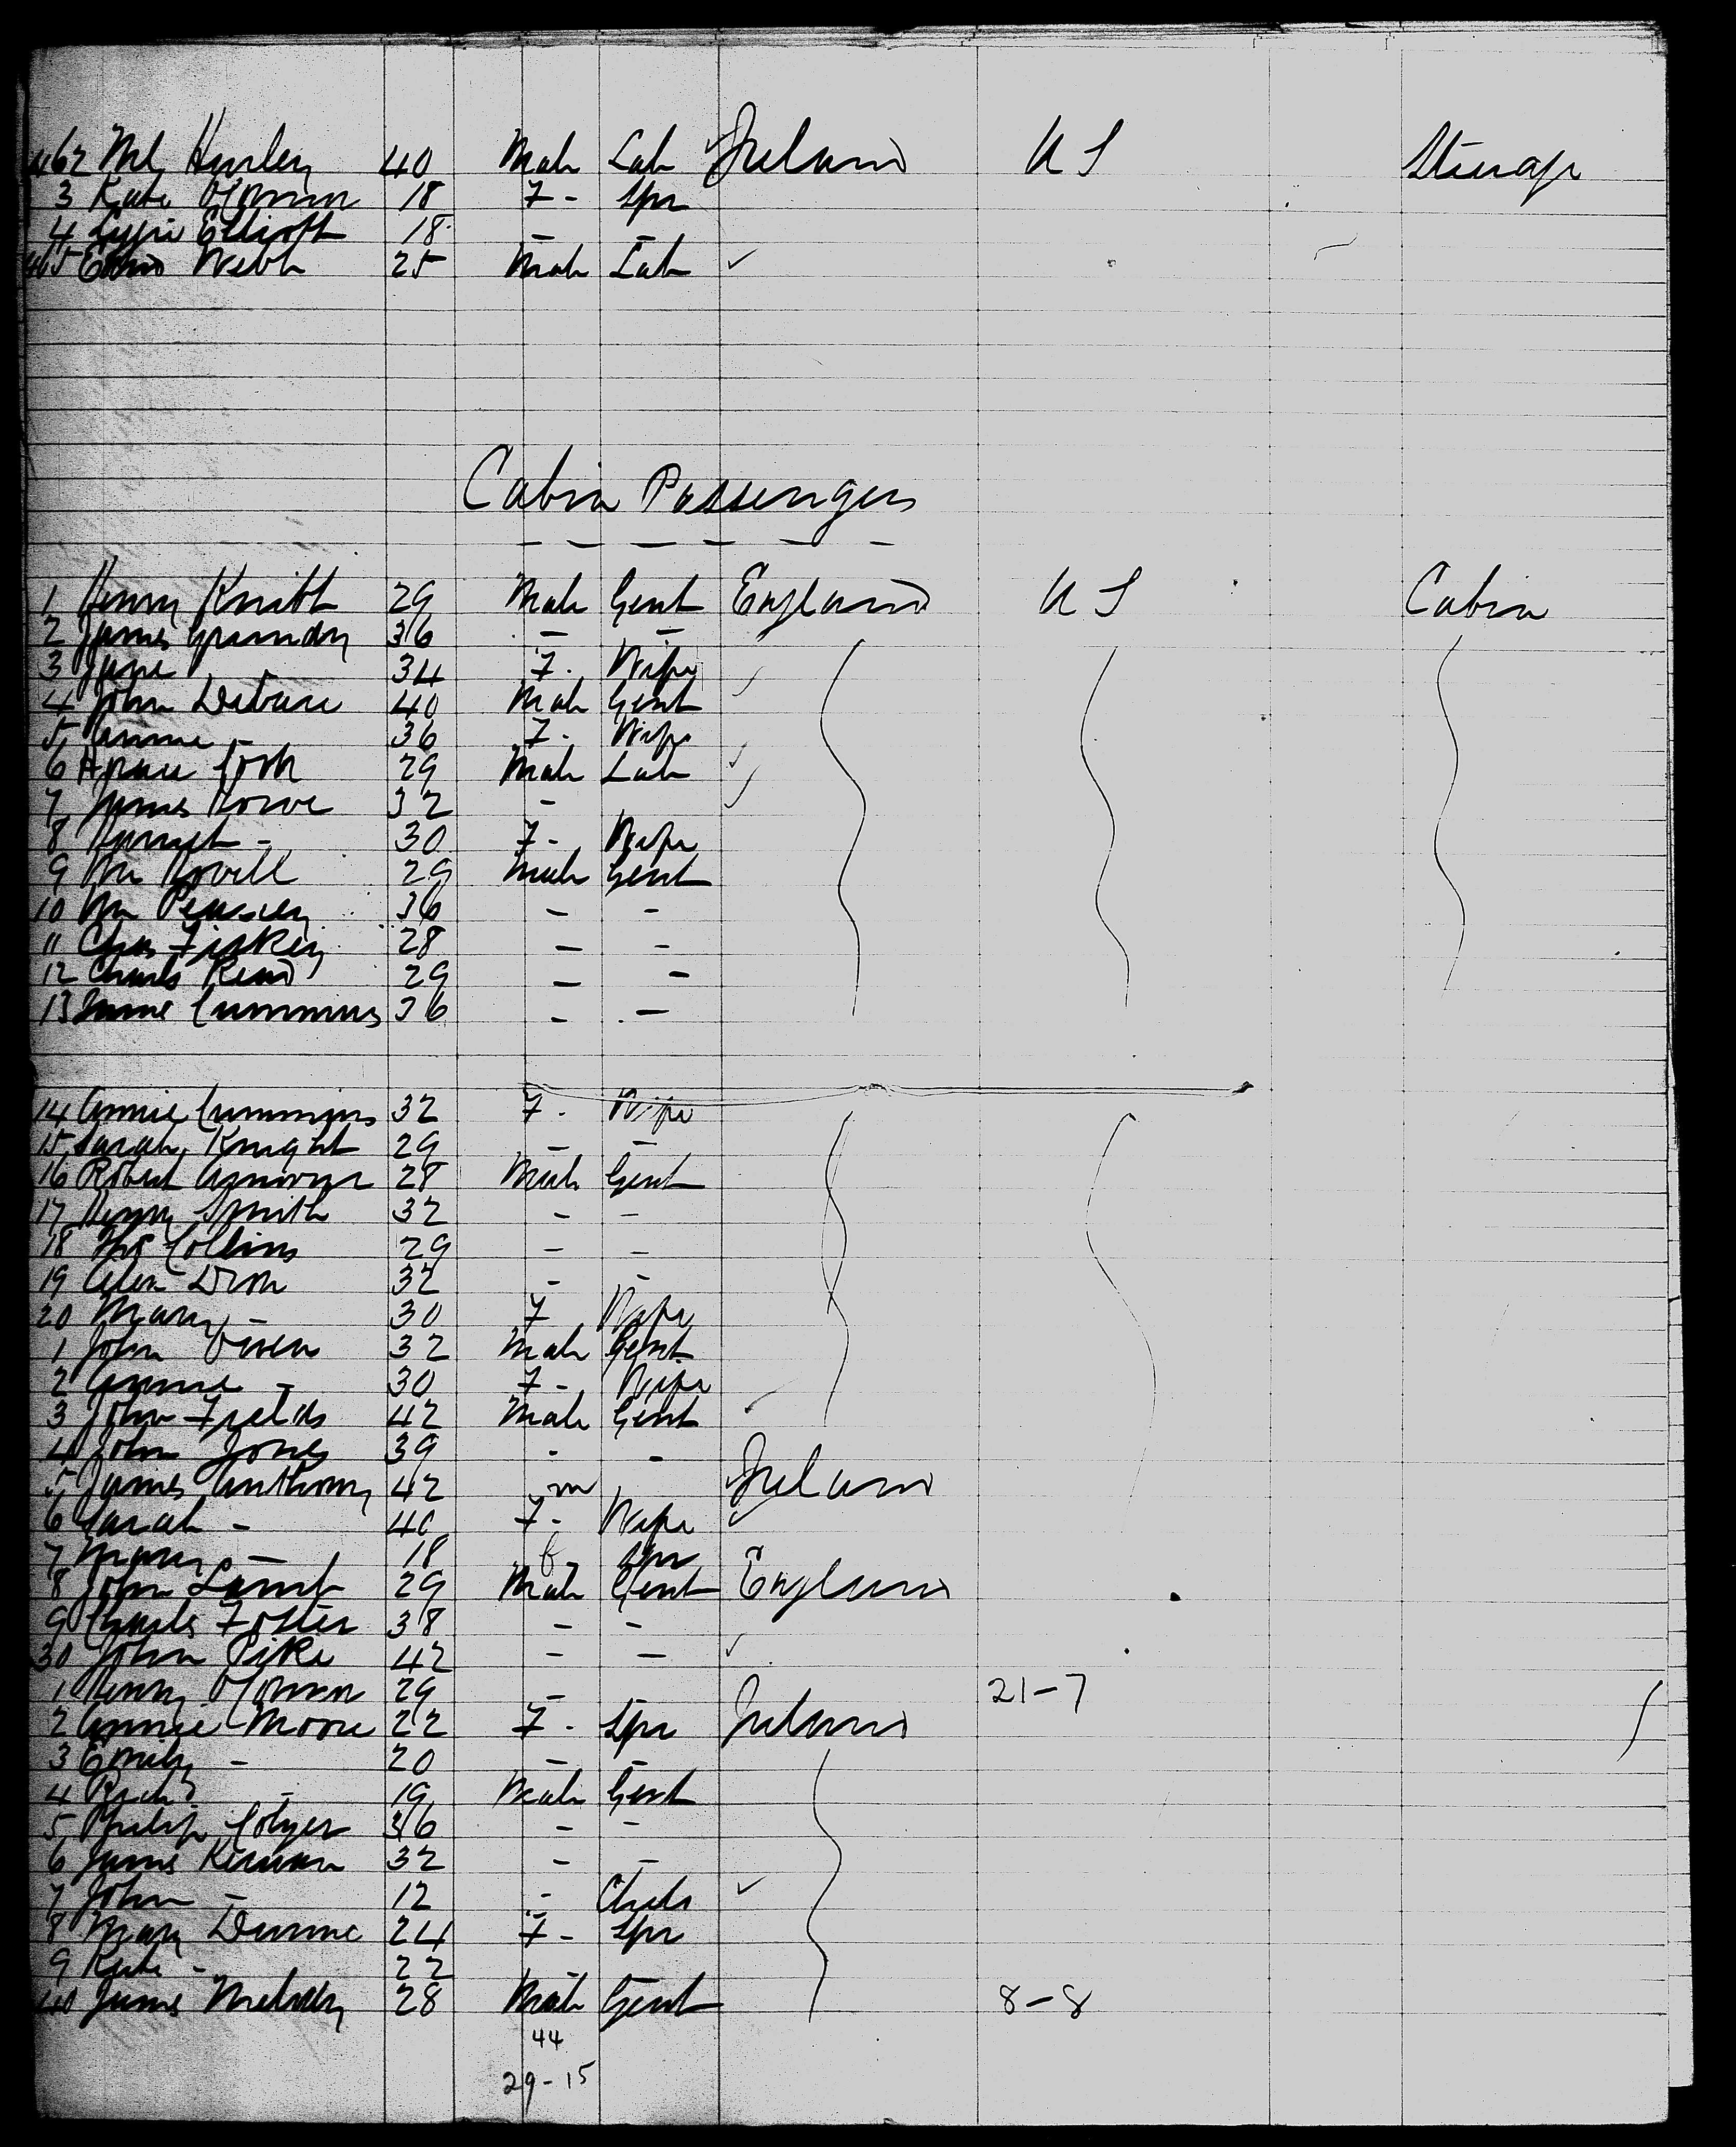 462 Ml Hurley 40 Male Lab Ireland U S Steerage
3 Kate O'Connor 18 F - Spr
4 Lizzie Elliott 18 - -
465 Webb 25 Male Lab
Cabin Passengers
1 Henry Knibb 29 Male Gent England U S Cabin
2 James Grandon 36 - -
3 Jane 34 F. Wife
4 John 40 Male Gent
5 Annie - 36 F. Wife
6 Horace 29 Male Lab
7 James 32 -
8 Harriet - 30 F - Wife
9 Wm 29 Male Gent
10 Wm 36 - -
11 Chas 28 - -
12 Charles Read 29 - -
13 Cummins 36 - -
14 Annie Cummins 32 F. Wife
15 Sarah Knight 29 - -
16 Robert 28 Male Gent
17 Henry Smith 32 - -
18 Thos Collins 29 - -
19 Alex Dion 32 - -
20 Mary - 30 F Wife
1 John Owens 32 Male Gent
2 Annie - 30 F - Wife
3 John Fields 42 Male Gent
4 John Jones 39 - -
5 James Anthony 42 m Ireland
6 Sarah - 40 F - Wife
7 Mary - 18 f Spr
8 John Lamb 29 Male Gent England
9 Charles Foster 38 - -
30 John Pike 42 - -
1 Henry O'Connor 29 - - 21-7
2 Annie Moore 22 F - Spr Ireland
3 Emily - 20 - -
4 Richd - 19 Male Gent
5 Philip Colyer 36 - -
6 James Kiernan 32 - -
7 John - 12 - Child
8 Mary Dunne 24 F - Spr
9 Kate - 22 - -
40 James Melody 28 Male Gent 8-8
44
29-15